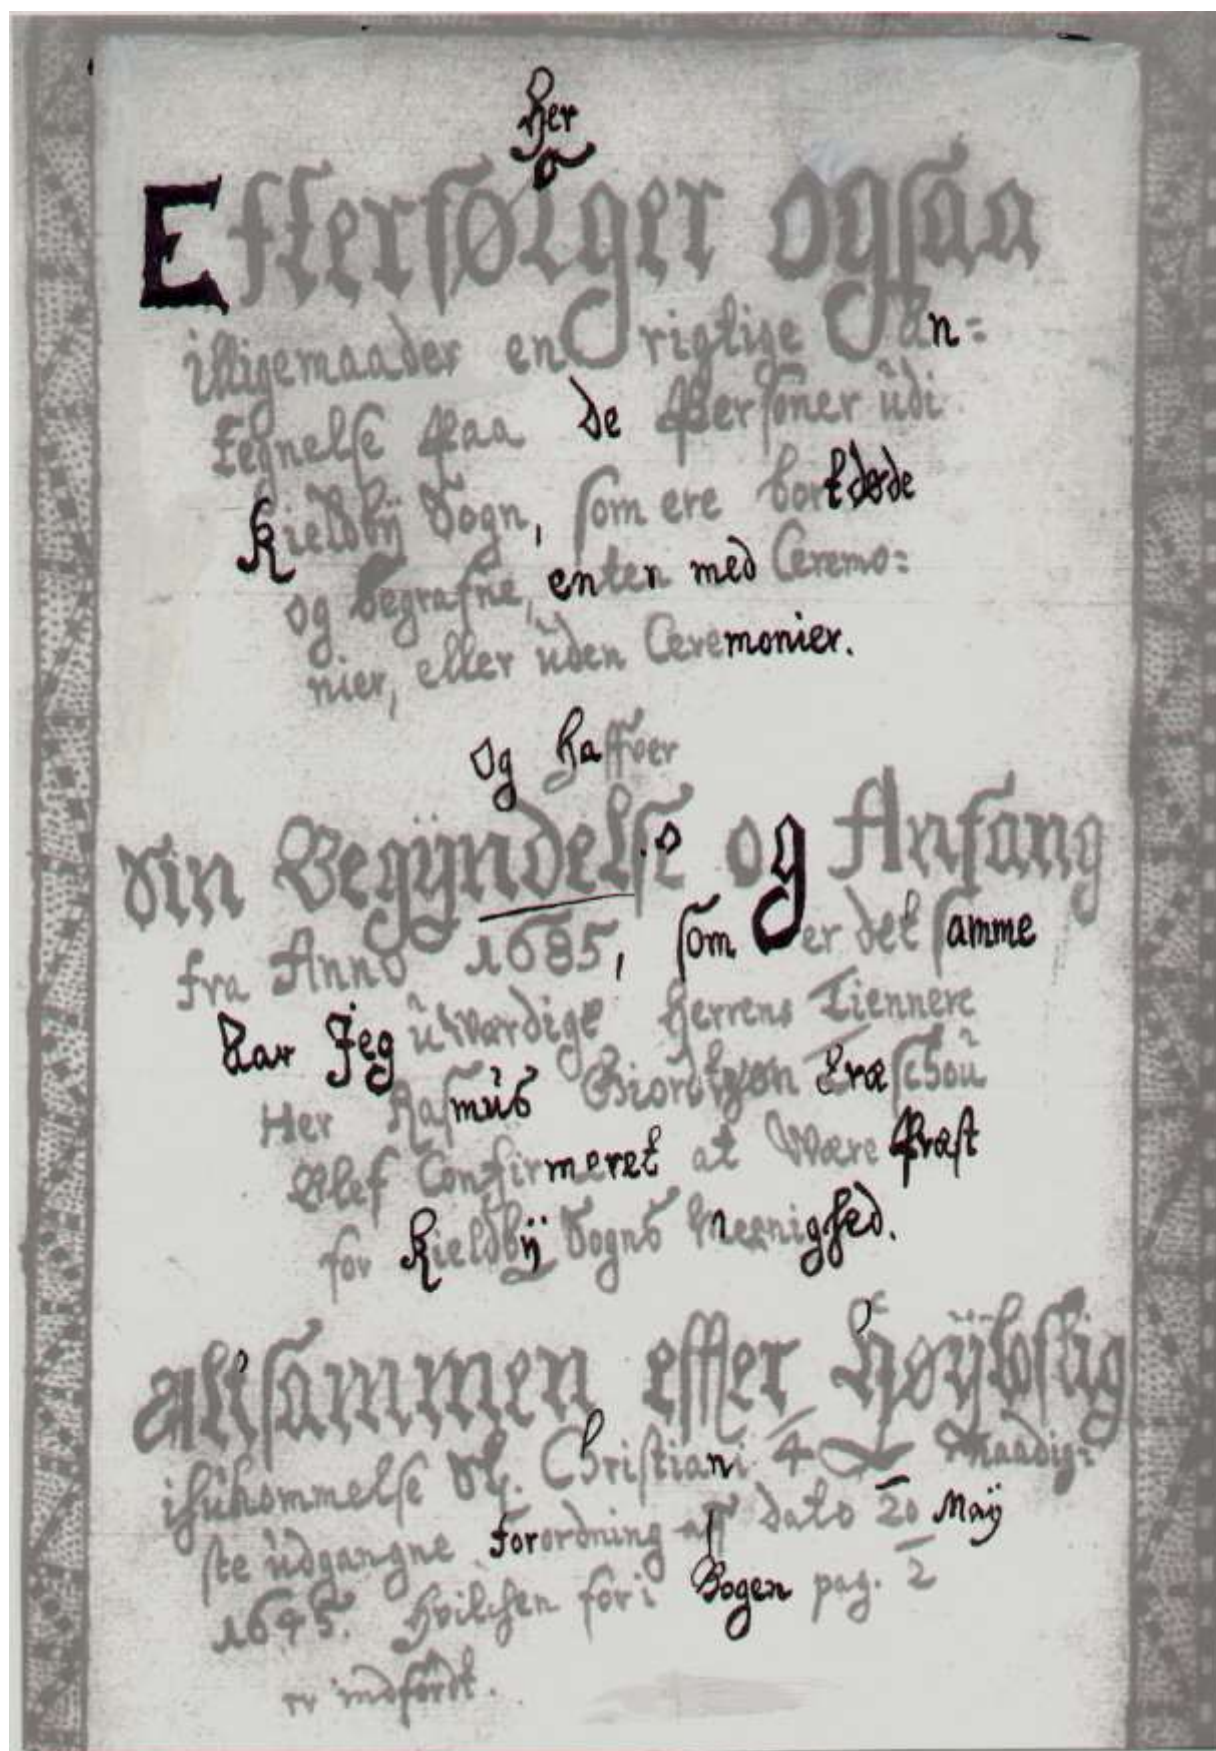 Her
Efterfølger ogsaa
illigemaader en rigtige An=
tegnelse paa de Personer udi
Kieldbÿ Sogn, som ere bortdøde
og begrafne, enten med Ceremo=
nier, eller ŭden Ceremonier.
Og haffver
Sin Begÿndelse og Anfang
fra Anno 1685, som er det samme
Aar Jeg ŭwærdige Herrens Tiennere
Her Rasmŭs
Blef Confirmeret at være Præst
for Kieldbÿ Sogns Meenighed.
Altsammen effter Høÿloflig
ihŭkommelse Christiani Naadig:
ste ŭdgangne Forordning aff Dato 20 Maÿ
Hvilchen for i Bogen pag. 2
er indførdt.